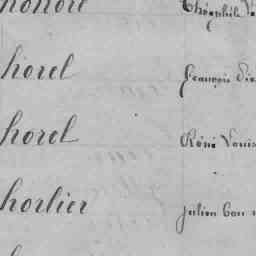 honoré Théophile
horel François
horel René Louis
horlier Julien Bon